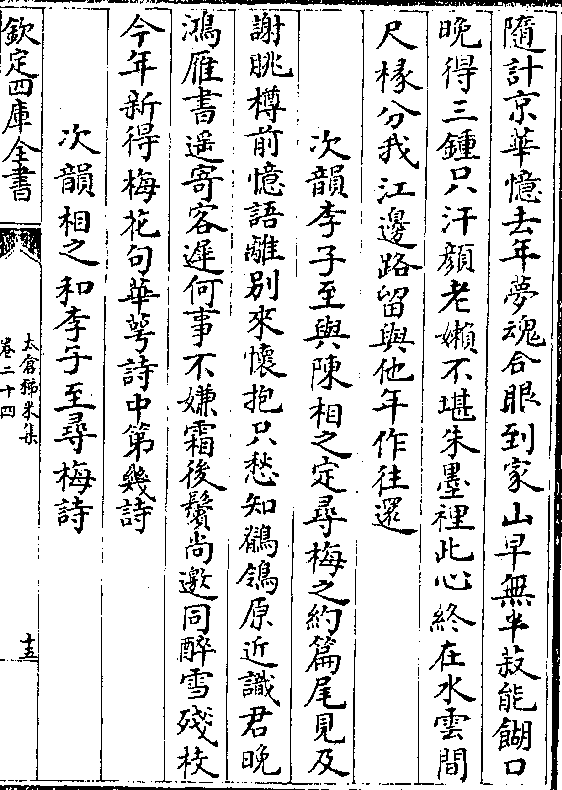 隨計京華憶去年夢魂合眼到家山早無半菽能餬口
晚得三鍾只汗顔老嬾不堪朱墨裡此心終在水雲間
尺椽分我江邊路留與他年作往還
次韻李子至與陳相之定尋梅之約篇尾見及
謝眺樽前憶語離别來懷抱只愁知鶺鴒原近識君晚
鴻雁書遥寄客遲何事不嫌霜後鬢尚邀同醉雪殘枝
今年新得梅花句華萼詩中第幾詩
次韻相之和李子至尋梅詩
欽定四庫全書
太倉稊米集
卷二十四
十五